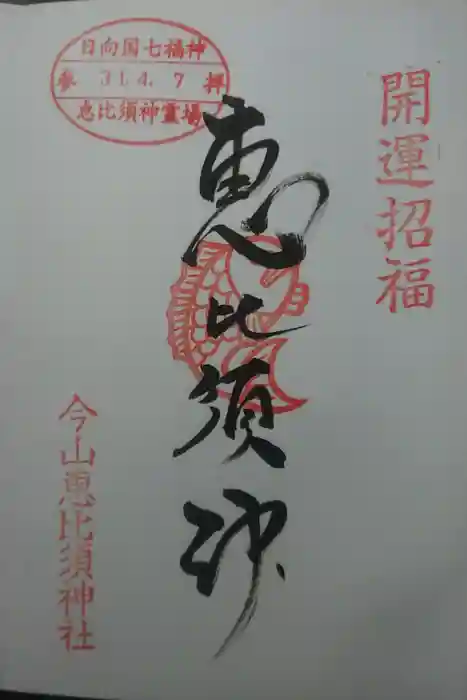 開運招福
恵比須神
日向国七福神
参 31.4.7 拝
恵比須神霊場
今山恵比須神社